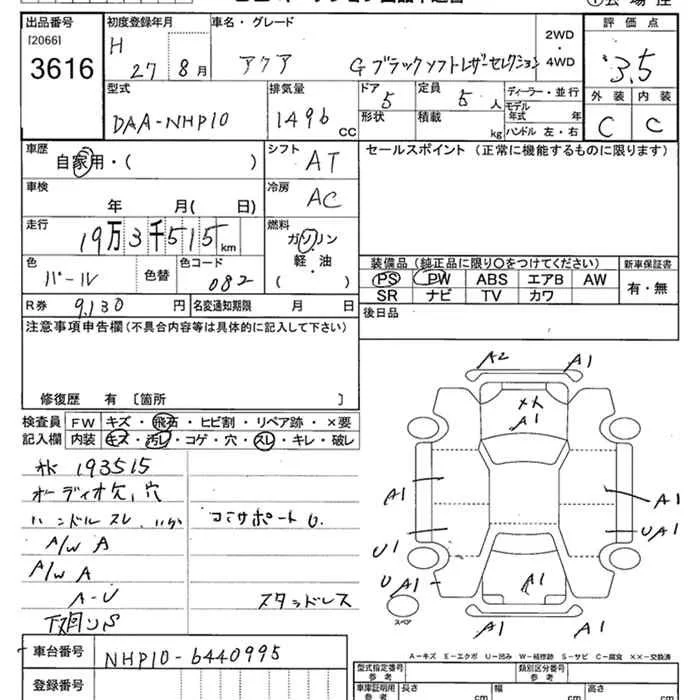 出品番号
[2066]
3616
初度登録年月
H 27年 8月
車名・グレード
アクア G ブラックソフトレザーセレクション
2WD
・
4WD
評価点
3.5
外装 内装
C C
型式
DAA-NHP10
排気量
1496 CC
ドア
5
形状
定員
5人
積載
kg
ディーラー・並行
モデル年式 年
ハンドル 左・右
車歴
自家用・( )
シフト
AT
セールスポイント (正常に機能するものに限ります)
車検
年 月( 日)
冷房
AC
走行
19万3千515km
燃料
ガソリン
軽・油
( )
色
パール
色替
色コード
082
R券 9,130 円
名変通知期限 月 日
装備品 (純正品に限り○をつけてください)
PS PW ABS エアB AW
SR ナビ TV カワ
新車保証書
有・無
後日品
注意事項申告欄(不具合内容等は具体的に記入して下さい)
修復歴 有 〔箇所 〕
検査員記入欄
FW キズ・飛石・ヒビ割・リペア跡・×要
内装 キズ・汚レ・コゲ・穴・スレ・キレ・破レ
193515
オーディオ欠、穴
ハンドルスレ
A/W A
A/W A
A-U
下廻りS
スタッドレス
A2 A1
A1
A1 A1
U1 UA1
U A1 A1
A1 A1
スペア
A-キズ E-エクボ U-凹み W-補修跡 S-サビ C-腐食 XX-交換済
車台番号
NHP10-6440995
登録番号
型式指定番号
参考
類別区分番号
参考
車庫証明用
参考
長さ cm
幅 cm
高さ cm